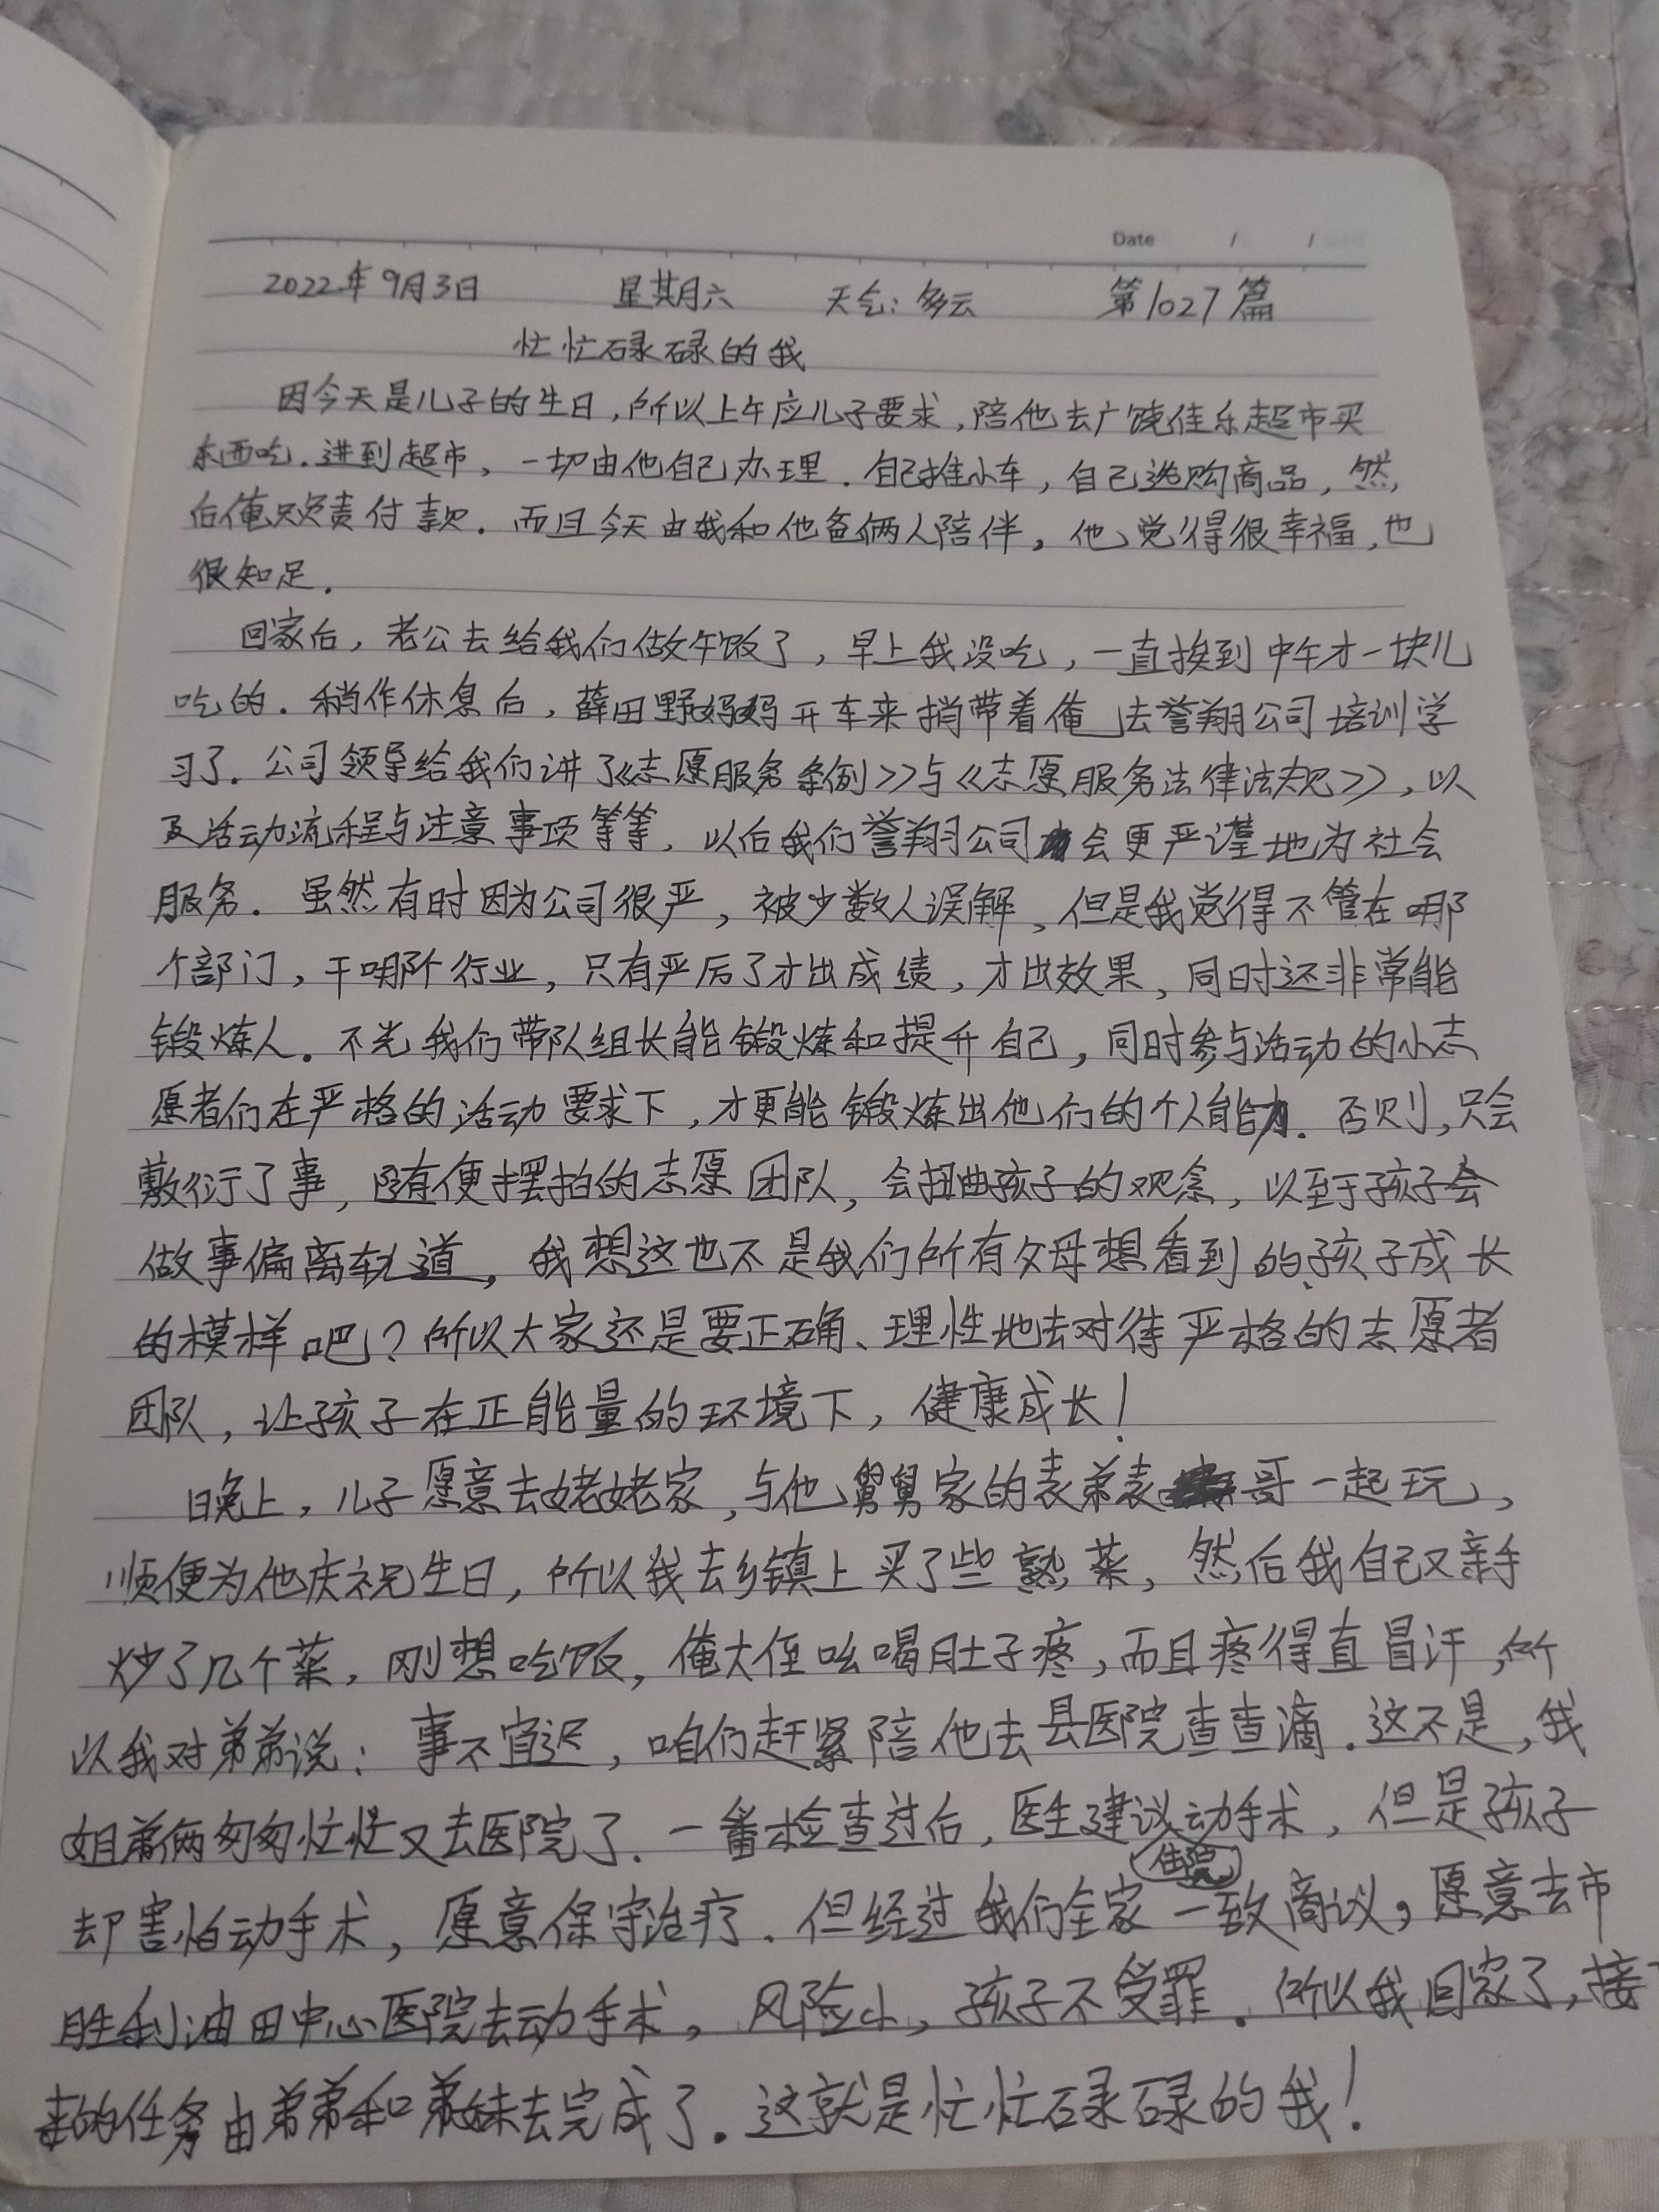 Date / /
2022年9月3日 星期六 天气:多云 第1027篇
忙忙碌碌的我
因今天是儿子的生日,所以上午应儿子要求,陪他去广饶佳乐超市买
东西吃.进到超市,一切由他自己办理.自己推小车,自己选购商品,然
后俺只负责付款.而且今天由我和他爸俩人陪伴,他觉得很幸福,也
很知足.
回家后,老公去给我们做午饭了,早上我没吃,一直挨到中午才一块儿
吃的.稍作休息后,薛田野妈妈开车来捎带着俺去誉翔公司培训学
习了.公司领导给我们讲了《志愿服务条例》与《志愿服务法律法规》,以
及活动流程与注意事项等等.以后我们誉翔公司会更严谨地为社会
服务.虽然有时因为公司很严,被少数人误解,但是我觉得不管在哪
个部门,干哪个行业,只有严厉了才出成绩,才出效果,同时还非常能
锻炼人.不光我们带队组长能锻炼和提升自己,同时参与活动的小志
愿者们在严格的活动要求下,才更能锻炼出他们的个人能力.否则,只会
敷衍了事,随便摆拍的志愿团队,会扭曲孩子的观念,以至于孩子会
做事偏离轨道,我想这也不是我们所有父母想看到的孩子成长
的模样吧?所以大家还是要正确、理性地去对待严格的志愿者
团队,让孩子在正能量的环境下,健康成长!
晚上,儿子愿意去姥姥家,与他舅舅家的表弟表哥一起玩,
顺便为他庆祝生日,所以我去乡镇上买了些熟菜,然后我自己又亲手
炒了几个菜,刚想吃饭,俺大侄吆喝肚子疼,而且疼得直冒汗,所
以我对弟弟说:事不宜迟,咱们赶紧陪他去县医院查查滴.这不是,我
姐弟俩匆匆忙忙又去医院了.一番检查过后,医生建议住院动手术,但是孩子
却害怕动手术,愿意保守治疗.但经过我们全家一致商议,愿意去市
胜利油田中心医院去动手术,风险小,孩子不受罪.所以我回家了,接下
来的任务由弟弟和弟妹去完成了.这就是忙忙碌碌的我!